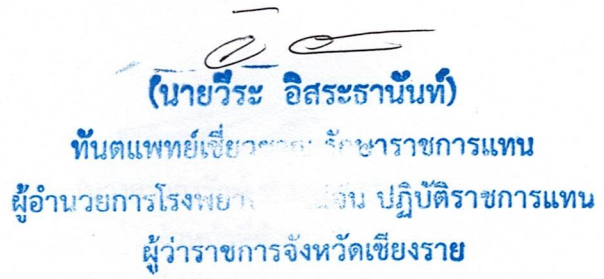 (นายวีระ อิสระธานันท์)
ทันตแพทย์เชี่ยวชาญ รักษาราชการแทน
ผู้อำนวยการโรงพยา ปฏิบัติราชการแทน
ผู้ว่าราชการจังหวัดเชียงราย